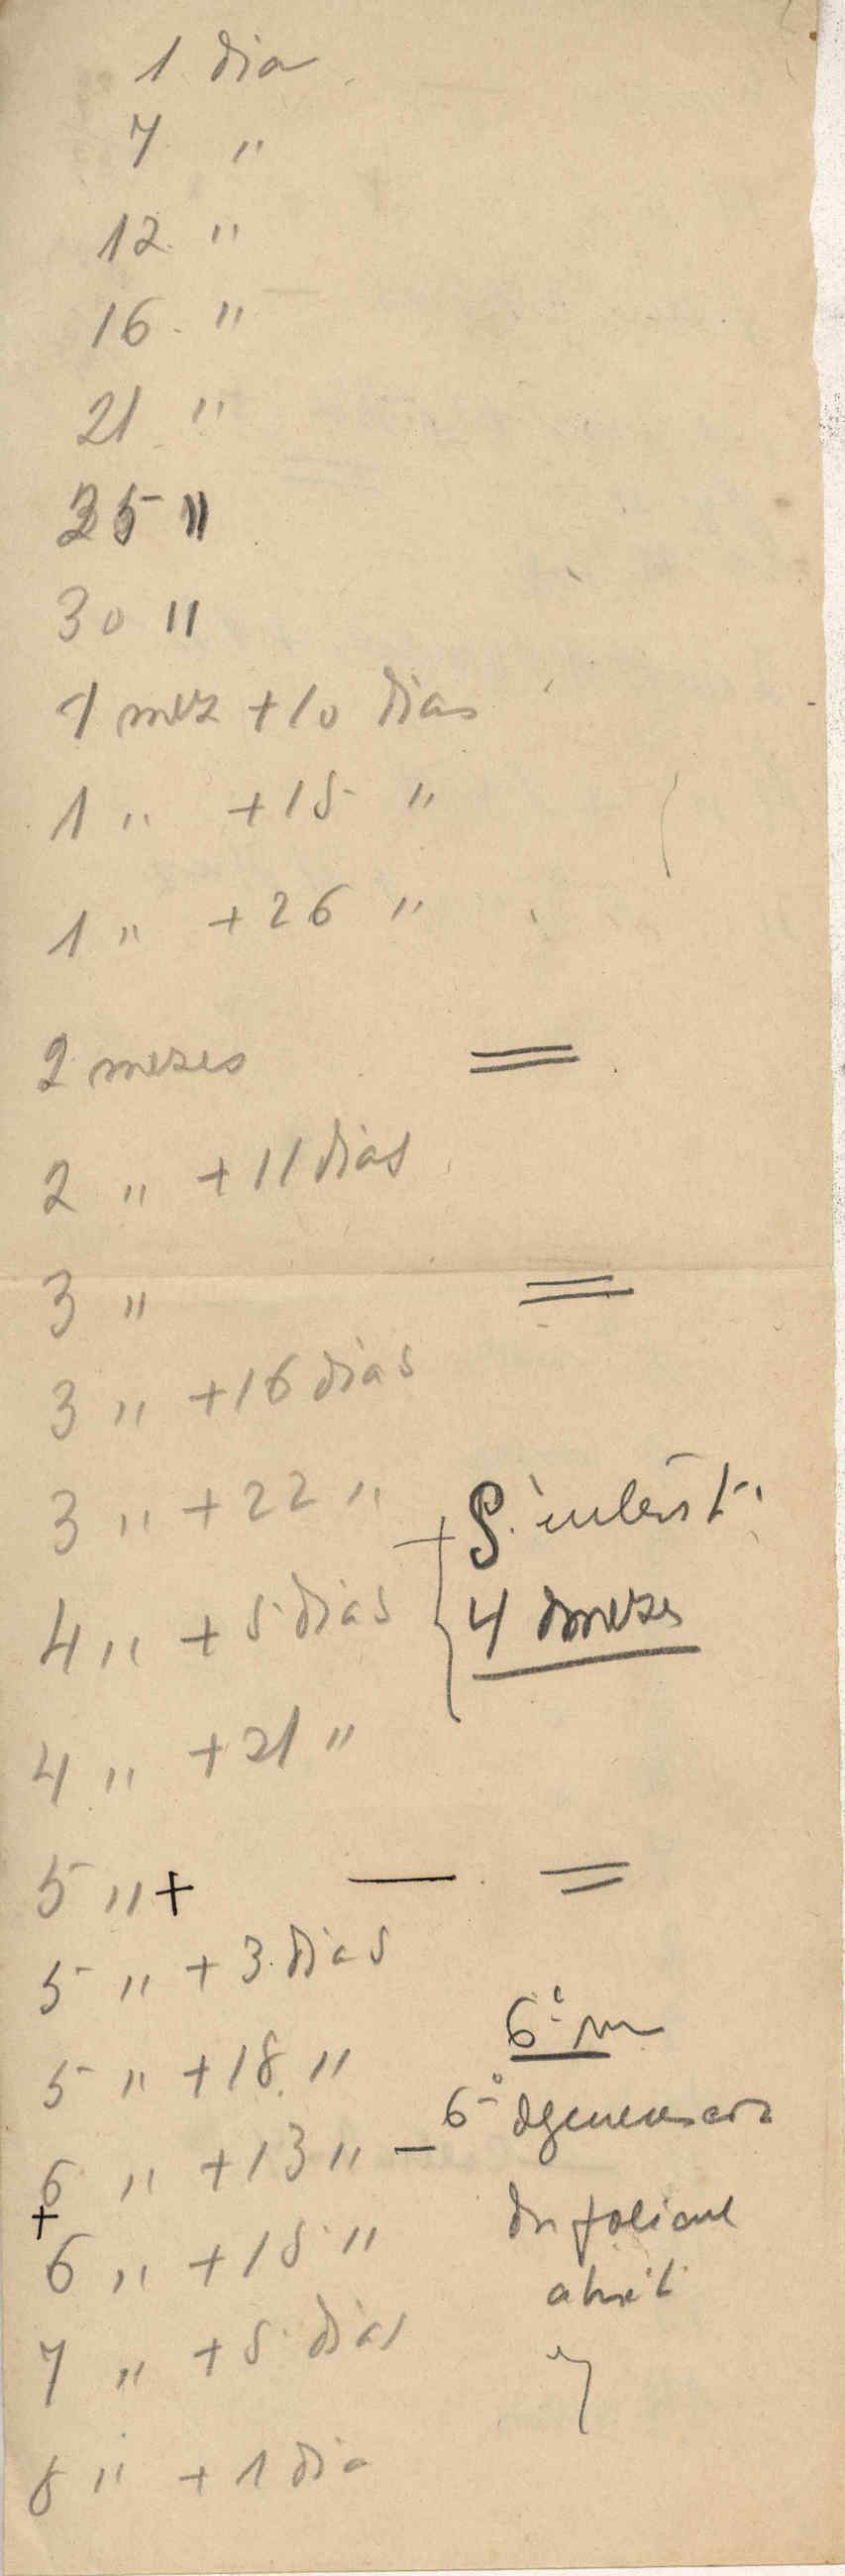 1 dia
7 "
12 "
16 "
21 "
25 "
30 "
1 mez + 10 dias
1 " + 15 "
1 " + 26 "
2 mezes =
2 " + 11 dias
3 " =
3 " + 16 dias
3 " + 22 "
+ S.
4 " + 5 dias
4 mezes
4 " + 21 "
5 " + — =
5 " + 3 dias
6º m
5 " + 18 "
6 " + 13 " — 6º
6 " + 15 "
+
7 " + 5 dias
8 " + 1 dia